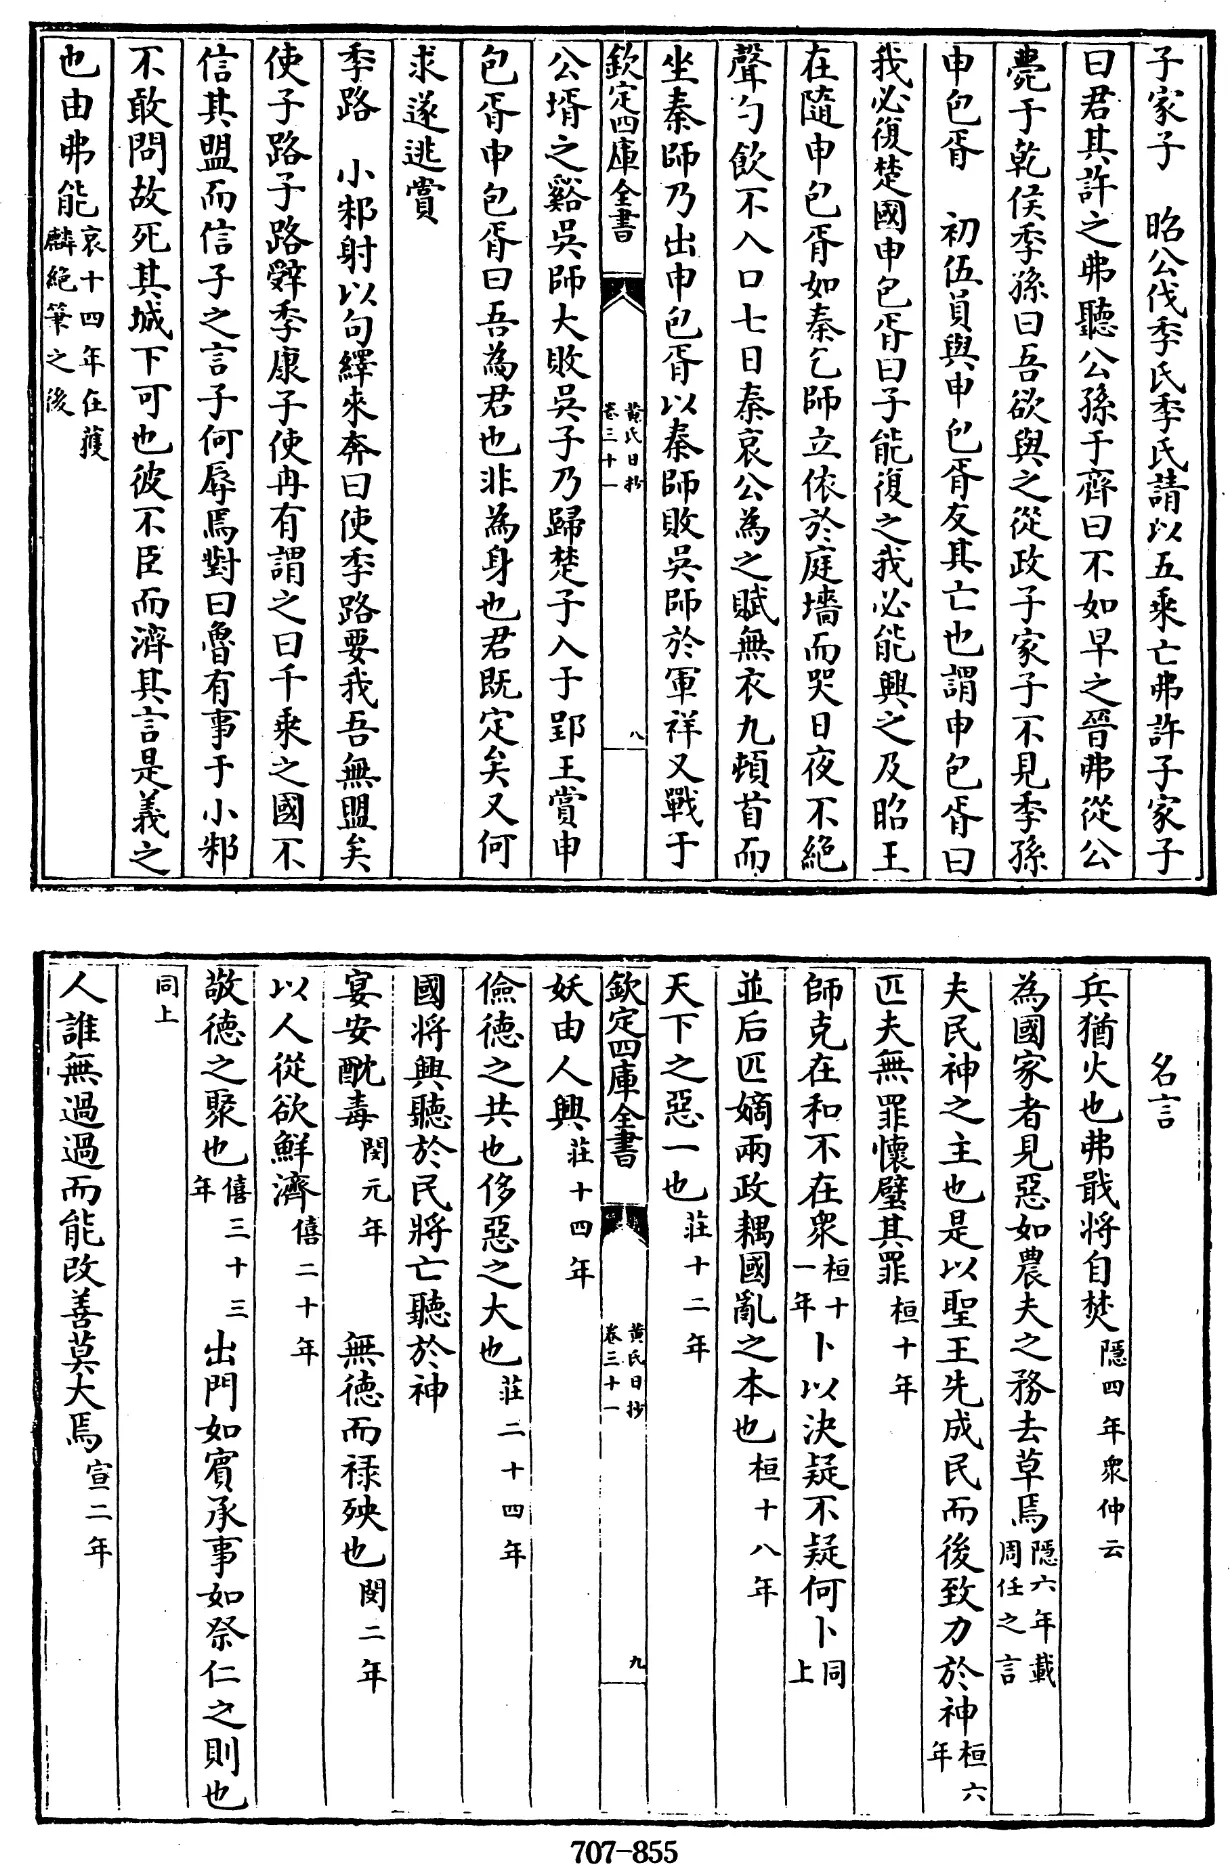 子家子　昭公伐季氏季氏請以五乘亡弗許子家子
曰君其許之弗聽公孫于齊曰不如早之晉弗從公
薨于乾侯季孫曰吾欲與之從政子家子不見季孫
申包胥　初伍員與申包胥友其亡也謂申包胥曰
我必復楚國申包胥曰子能復之我必能興之及昭王
在隨申包胥如秦乞師立依於庭墻而哭日夜不絶
聲勺飲不入口七日秦哀公為之賦無衣九頓首而
坐秦師乃出申包胥以秦師敗吳師於軍祥又戰于
欽定四庫全書
黄氏日抄
卷三十一
八
公壻之谿吳師大敗吳子乃歸楚子入于郢王賞申
包胥申包胥曰吾為君也非為身也君既定矣又何
求遂逃賞
季路　小邾射以句繹來奔曰使季路要我吾無盟矣
使子路子路辭季康子使冉有謂之曰千乘之國不
信其盟而信子之言子何辱焉對曰魯有事于小邾
不敢問故死其城下可也彼不臣而濟其言是義之
也由弗能哀十四年在獲麟絶筆之後
名言
兵猶火也弗戢將自焚隱四年衆仲云
為國家者見惡如農夫之務去草焉隱六年載周任之言
夫民神之主也是以聖王先成民而後致力於神桓六年
匹夫無罪懷璧其罪桓十年
師克在和不在衆桓十一年卜以決疑不疑何卜同上
並后匹嫡兩政耦國亂之本也桓十八年
天下之惡一也莊十二年
欽定四庫全書
黄氏日抄
卷三十一
九
妖由人興莊十四年
儉德之共也侈惡之大也莊二十四年
國將興聽於民將亡聽於神
宴安酖毒閔元年　無德而禄殃也閔二年
以人從欲鮮濟僖二十年
敬德之聚也僖三十三年　出門如賓承事如祭仁之則也
同上
人誰無過過而能改善莫大焉宣二年
707-855